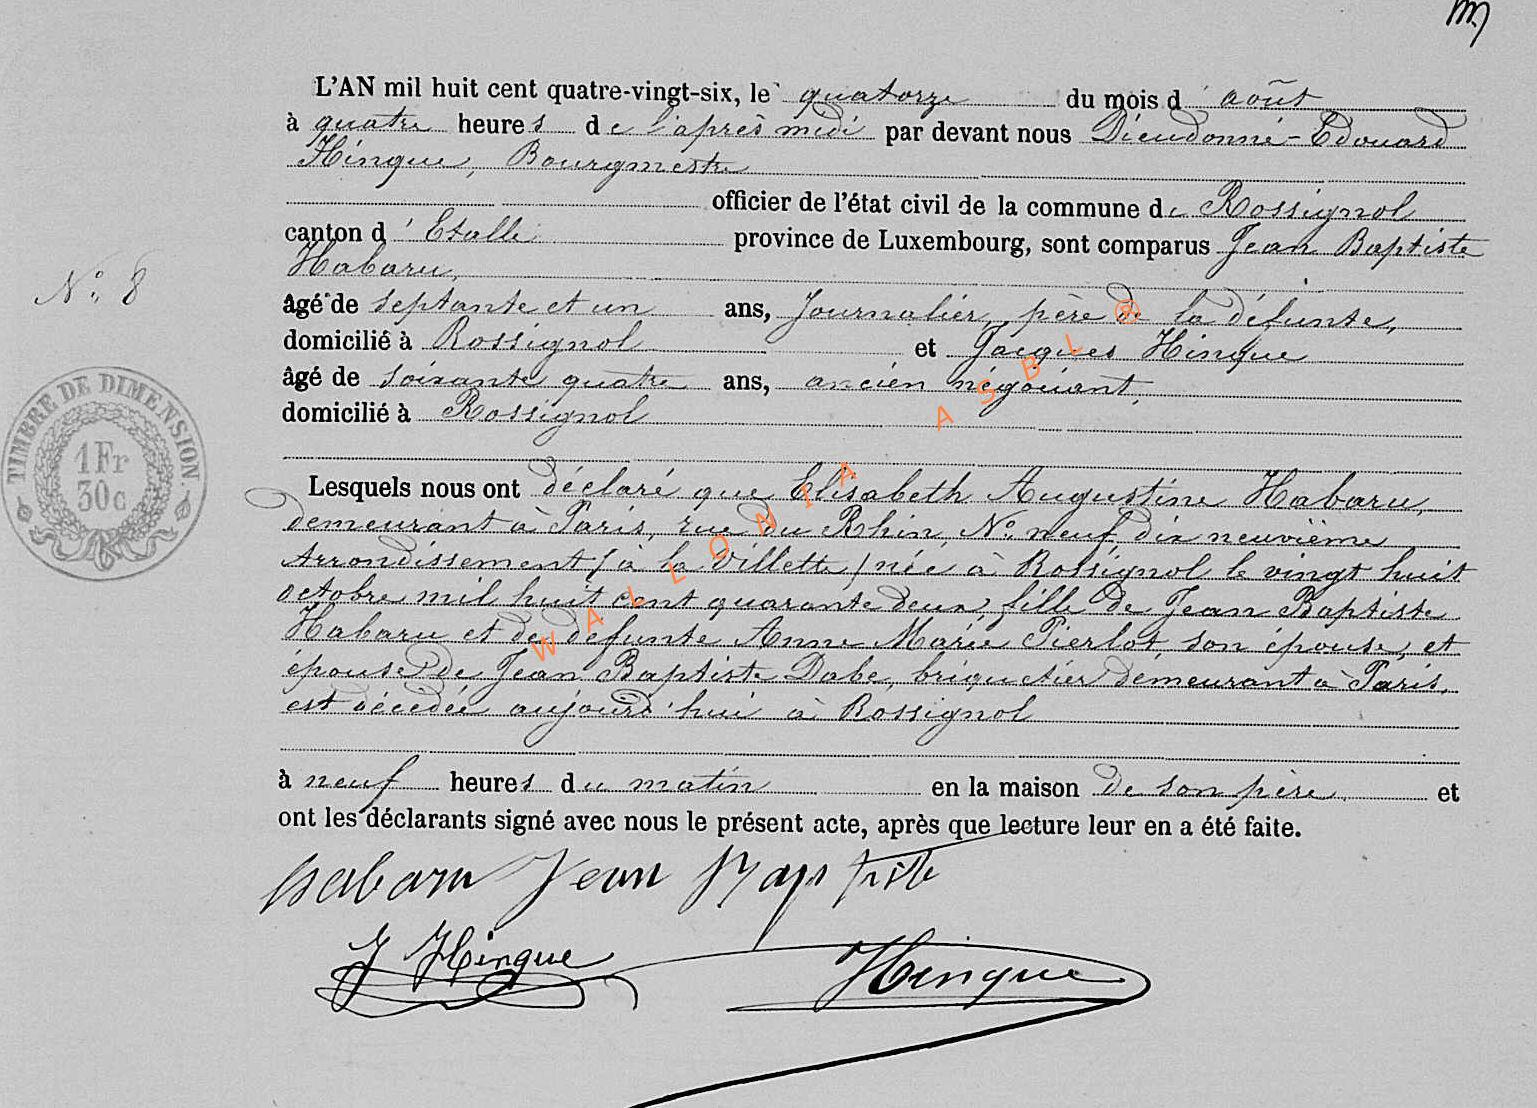 L'AN mil huit cent quatre-vingt-six, le quatorze du mois d'août
à quatre heures de l'après midi par devant nous Dieudonné-Edouard
Hinque, Bourgmestre
officier de l'état civil de la commune de Rossignol
canton d'Etalle province de Luxembourg, sont comparus Jean Baptiste
Habaru,
âgé de septante et un ans, Journalier, père de la défunte,
domicilié à Rossignol et Jacques Hinque
âgé de soixante quatre ans, ancien négociant,
domicilié à Rossignol
N° 8
TIMBRE DE DIMENSION
1Fr
30c
Lesquels nous ont déclaré que Elisabeth Augustine Habaru,
demeurant à Paris, rue du Rhin, N° neuf dix neuvième
Arrondissement (à la Villette) née à Rossignol le vingt huit
octobre mil huit cent quarante deux, fille de Jean Baptiste
Habaru et de défunte Anne Marie Pierlot, son épouse, et
épouse de Jean Baptiste Dabe, briquetier demeurant à Paris,
est décédée aujourd'hui à Rossignol
à neuf heures du matin en la maison de son père et
ont les déclarants signé avec nous le présent acte, après que lecture leur en a été faite.
habaru Jean Baptiste
J Hinque Hinque
WALLONIA ASBL ®